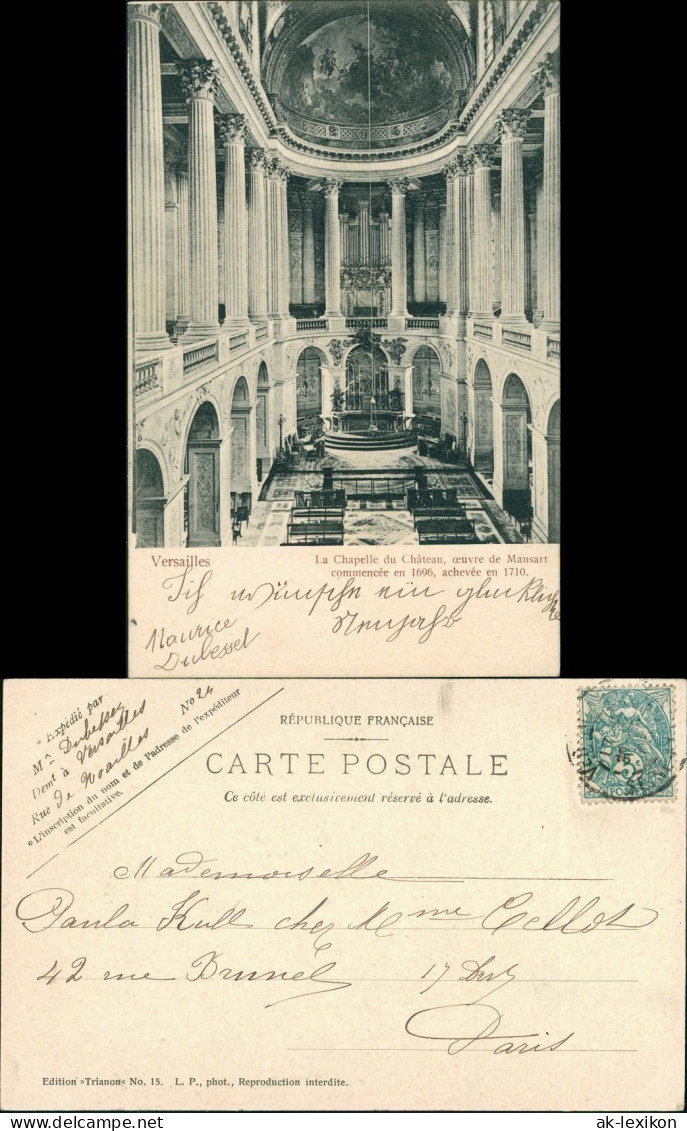 Versailles
La Chapelle du Château, œuvre de Mansart
commencée en 1696, achevée en 1710.
wünsche ein glückliche
Neujahr
Maurice
Dubessel
* Expédié par
Mr Dubessey No 24
Demt à Versailles
Rue de Noailles
*L'inscription du nom et de l'adresse de l'expéditeur
est facultative.
RÉPUBLIQUE FRANÇAISE
CARTE POSTALE
Ce côté est exclusivement réservé à l'adresse.
Mademoiselle
Paula Kull chez Mme Cellot
42 rue Brunel 17
Paris
Edition »Trianon« No. 15. L. P., phot., Reproduction interdite.
www.ak-ansichtskarten.de
ak-lexikon